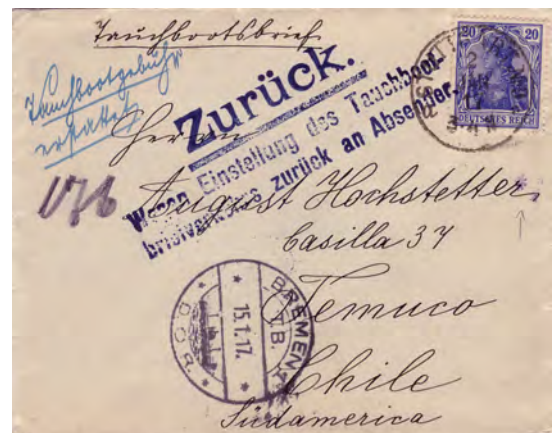 Tauchbootsbrief
Tauchbootgebühr
erstattet
Zurück.
Wegen Einstellung des Tauchboot-
briefverkehrs zurück an Absender.
20 20
DEUTSCHES REICH
STUTTGART
Herrn
August Hochstetter
Casilla 37
Temuco
Chile
Südamerica
BREMEN
T.B.
15.1.17.